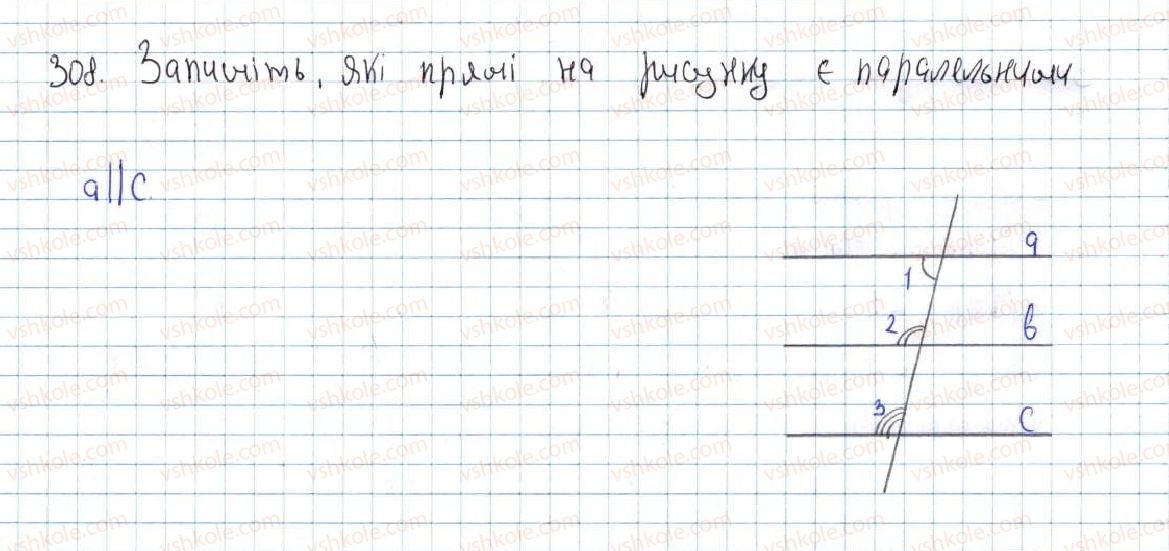 308. Запишіть, які прямі на рисунку є паралельними
a||c.
a
1
2
b
3
c